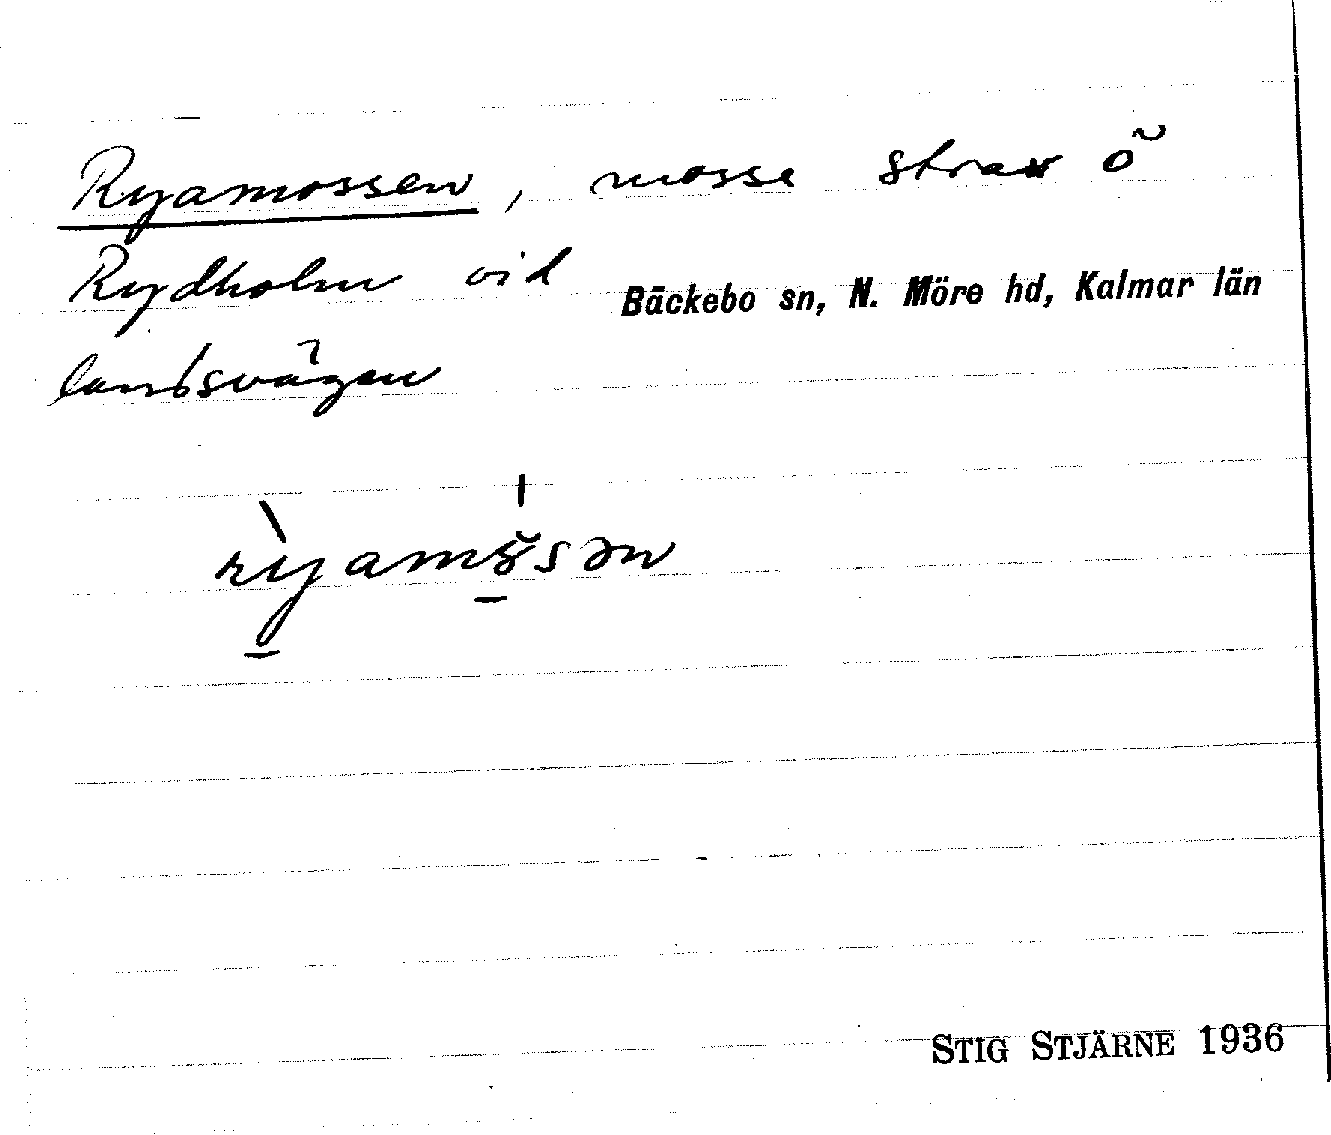 Ryamossen, mosse strax ö
Rydholm vid
Bäckebo sn, N. Möre hd, Kalmar län
landsvägen
STIG STJÄRNE 1936